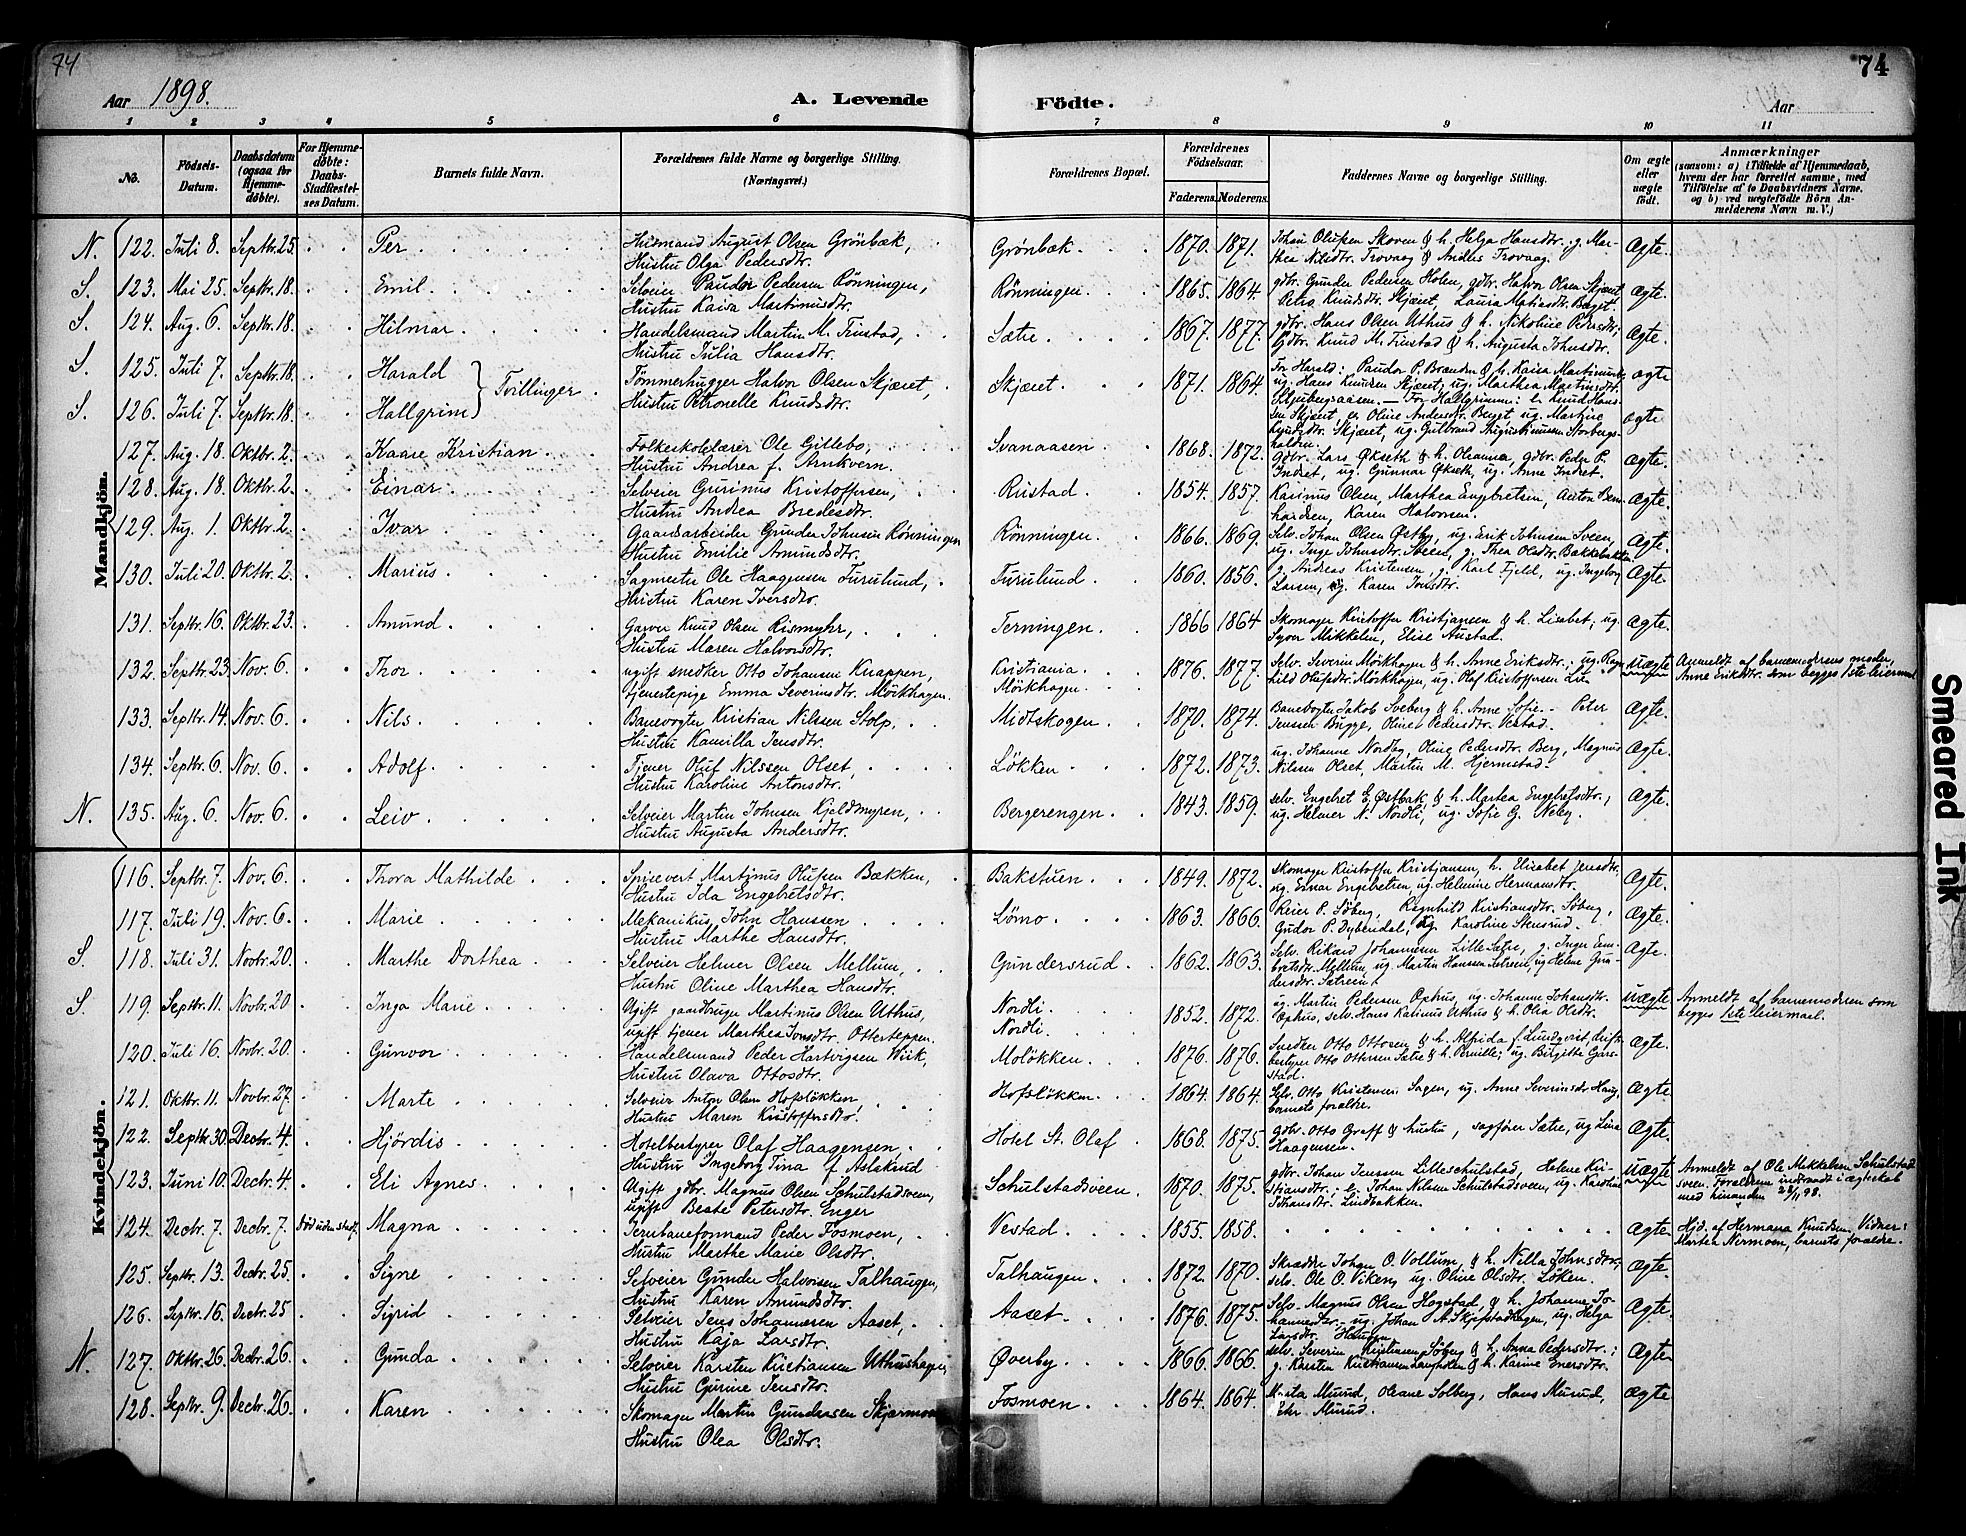 74
Aar 1898.
A. Levende
Födte.
Aar
74
1 2 3 4 5 6 7 8 9 10 11
No.
Födsels-Datum.
Daabsdatum (ogsaa for Hjemme-döbte).
For Hjemme-döbte: Daabs-Stadfæstel-ses Datum.
Barnets fulde Navn.
Forældrenes fulde Navne og borgerlige Stilling. (Næringsvei.)
Forældrenes Bopæl.
Forældrenes Födselsaar.
Faderens. Moderens.
Faddernes Navne og borgerlige Stilling.
Om ægte eller uægte födt.
Anmærkninger
(saasom: a) i Tilfælde af Hjemmedaab, hvem der har forrettet samme, med Tilföielse af to Daabsvidners Navne. og b) ved uægtefödte Börn An-melderens Navn m. V.)
Mandkjön.
N. 122. Juli 8. Septbr. 25. Per Husmand August Olsen Grönbæk, Grönbæk. 1870. 1871. Johan Olufsen Skoven & h. Helga Hansdtr. g. Mar- Ægte.
Hustru Olga Pedersdtr. thea Nilsdtr. Trovaag & Andreas Trovaag.
S. 123. Mai 25. Septbr. 18. Emil. Selveier Paudor Pedersen Rönningen, Rönningen. 1865. 1864. gdbr. Gunder Pedersen Holen, gdbr. Halvor Olsen Skjæret, Ægte.
Hustru Kaisa Martinusdtr. Petra Knudsdtr. Skjæret, Laura Matisdtr. Berget.
S. 124. Aug. 6. Septbr. 18. Hilmar. Handelsmand Martin M. Finstad, Sætre. 1867. 1877. gdbr. Hans Olsen Uthus & h. Nikoline Pedersdtr; Ægte.
Hustru Julia Hansdtr. Gdbr. Knud M. Finstad & h. Augusta Johnsdtr.
S. 125. Juli 7. Septbr. 18. Harald } Tvillinger. Tömmerhugger Halvor Olsen Skjæret, Skjæret. 1871. 1864. For Harald: Paudor P. Brænden & h. Kaisa Martinusdtr. ægte
Hustru Petronelle Knudsdtr. ug. Hans Knudsen Skjæret, ug. Marthea Martinsdtr.
S. 126. Juli 7. Septbr. 18. Hallgrim Stjubergsaasen. — For Hallgrimm: e. Knud Hans- ægte
sen Skjæret, e. Oline Andersdtr. Berget, ug. Martine
Skjæret, ug. Gulbrand Augustinusen Storbergs-
halden.
127. Aug. 18. Oktbr. 2. Kaare Kristian Folkeskolelærer Ole Gillebo, Svanaasen 1868. 1872. Gdbr. Lars Økseth & h. Oleanna, gdbr. Peder P. Ægte.
Hustru Andrea f. Arnkvern. Indset, ug. Gunnar Økseth, ug. Anne Indset.
128. Aug. 18. Oktbr. 2. Einar. Selveier Gurinus Kristoffersen, Rustad. 1854. 1857. Karinus Olsen, Marthea Engebretsen, Anton Bern- Ægte.
Hustru Andrea Bredesdtr. hardsen, Karen Halvorsen.
129. Aug. 1. Oktbr. 2. Ivar. Gaardsarbeider Gunder Johnsen Rönningen Rönningen. 1866. 1869. Selv. Johan Olsen Østby, ug. Erik Johnsen Sveen, Ægte.
Hustru Emilie Amundsdtr. ug. Inge Johnsdtr. Sveen, g. Thea Olsdtr. Bakkebakken.
130. Juli 20. Oktbr. 2. Marius. Sagmester Ole Haagensen Furulund, Furulund. 1860. 1856. g. Andreas Kristensen, g. Karl Fjeld, ug. Ingeborg Ægte.
Hustru Karen Iversdtr. Larsen, ug. Karen Iversdtr.
131. Septbr. 16. Oktbr. 23. Amund. Garver Knud Olsen Rismyhr, Terningen. 1866 1864 Skomager Kristoffer Kristjansen & h. Lisabet; ug. Ægte.
Hustru Maren Halvorsdtr. Syver Mikkelsen, Elise Austad.
132. Septbr. 23. Nov. 6. Thor. ugift snedker Otto Johansen Knappen, Kristiania. 1876. 1877. Selv. Severin Mörkhagen & h. Anne Eriksdtr.; ug. Ragn- uægte Anmeldt af barnemodrens moder,
tjenestepige Emma Severinsdtr. Mörkhagen. Mörkhagen. hild Olufsdtr. Mörkhagen, ug. Olaf Kristoffersen Lie. Anne Eriksdtr. som begges 1ste leiermaal
133. Septbr. 14. Nov. 6. Nils. Banevogter Kristian Nilssen Stolp, Midtskogen. 1870. 1874. Banevogter Jakob Sveberg & h. Anne Sofie. — Peter Ægte.
Hustru Kamilla Jensdtr. Jensen Bugge, Oline Pedersdtr. Vestad.
134. Septbr. 6. Nov. 6. Adolf. Tjener Oluf Nilssen Olset, Lökken. 1872. 1873. ug. Johanne Nordby, Oline Pedersdtr. Berg, Magnus Ægte.
Hustru Karoline Antonsdtr. Nilsen Olset, Martin M. Hjermstad.
N. 135. Aug. 6. Nov. 6. Leiv. Selveier Martin Johnsen Kjeldmyren, Bergerengen. 1843. 1859. selv. Engebret E. Østbak & h. Martea Engebretsdtr.; Ægte.
Hustru Augusta Andersdtr. ug. Helmer N. Nordli, ug. Sofie G. Neby.
Kvindekjön.
116. Septbr. 7. Nov. 6. Thora Mathilde Spisevert Martinus Olufsen Bækken, Bakstuen. 1849. 1872. Skomager Kristoffer Kristjansen, h. Elisabet Jensdtr. Ægte.
Hustru Ida Engebretsdtr. ug. Einar Engebretsen, ug. Helmine Hermansdtr.
117. Juli 19. Nov. 6. Marie Mekanikus John Hanssen Lömo. 1863. 1866. Reier P. Söberg, Ragnhild Kristiansdtr. Söberg, Ægte.
Hustru Marthe Hansdtr. Gudor P. Dybendal, ug. Karoline Stensrud.
S. 118. Juli 31. Novbr. 20. Marthe Dorthea Selveier Helmer Olsen Mellum, Gundersrud. 1862. 1863. Selv. Rikard Johannesen Lille Sætre, g. Inger Em- Ægte.
Hustru Oline Marthea Hansdtr. bretsdtr. Mellum, ug. Martin Hanssen Sætreen, ug. Helene Gun-
dersdtr. Sætreen.
S. 119. Septbr. 11. Novbr. 20 Inga Marie Ugift gaardbruger Martinus Olsen Uthus, Nordli. 1852. 1872. ug. Martin Pedersen Ophus, ug. Johanne Johansdtr. uægte Anmeldt af barnemodren som
ugift tjener Marthea Iversdtr Otterteppen. Nordli. Ophus, selv. Hans Kalinus Uthus & h. Olia Olsdtr. begges 1ste leiermaal.
120. Juli 16. Novbr. 20. Gunvor Handelsmand Peder Hartvigsen Wiik, Molökken. 1876. 1876. Snedker Otto Ottosen & h. Alfrida f. Lundqvist, drifts- Ægte.
Hustru Olava Ottosdtr. bestyrer Otto Ottersen Sætre & h. Pernille; ug. Birgitte Gaas-
stad.
121. Oktbr. 11. Novbr. 27. Marte Selveier Anton Olsen Hofslökken Hofslökken. 1864. 1864. Selv. Otto Kristensen Sagen, ug. Anne Severinsdtr Haug, Ægte.
Hustru Maren Kristoffersdtr. barnets forældre.
122. Septbr. 30. Decbr. 4. Hjördis Hotelbestyrer Olaf Haagensen, Hotel St. Olaf 1868. 1875. gdbr. Otto Graff & hustru, sagförer Sætre, ug Lina Ægte.
Hustru Ingeborg Tina f. Aslaksrud Haagensen.
123. Juni 10. Decbr. 4. Eli Agnes Ugift gdbr. Magnus Olsen Schulstadsveen, Schulstadsveen. 1870. 1875. gdbr. Johan Jenssen Lilleschulstad, Helene Kri- uægte Anmeldt af Ole Mikkelsen Schulstad-
ugift Beate Petersdtr. Enger stiansdtr.; e. Johan Nilsen Schulstadsveen, ug. Karoline sveen. Forældrene indtraadt i ægteskab
Johansdtr. Lindbakken. med hinanden 28/11 98.
124. Decbr. 7. Decbr. 7. Död uden stadf. Magna Jernbaneformand Peder Fosmoen, Vestad. 1855. 1858. Ægte Hjd. af Hermana Knudsen. Vidner:
Hustru Marthe Marie Olsdtr. Martea Nermoen, barnets forældre.
125. Septbr. 13. Decbr. 25. Signe Selveier Gunder Halvorsen Talhaugen, Talhaugen. 1872. 1870. Skrædder Johan O. Vollum, & h. Nella Johnsdtr, Ægte.
Hustru Karen Amundsdtr. selv. Ole O. Viken, ug. Oline Olsdtr. Löken.
126. Septbr. 16. Decbr. 25 Sigrid Selveier Jens Johannesen Aaset, Aaset. 1876. 1875. Selv. Magnus Olsen Hogstad, & h. Johanne Jo- Ægte.
Hustru Kaja Larsdtr. hannesdtr. — ug. Johan A. Skjefstadhagen, ug. Helga
Larsdtr. Haugen.
N. 127. Oktbr. 26. Decbr. 26. Gunda Selveier Karsten Kristiansen Uthushagen, Øverby. 1866. 1866. selv. Severin Kristensen Söberg & h. Anna Pedersdtr.; Ægte
Hustru Gurine Jensdtr. g. Karsten Kristiansen Langholen & h. Karine Enersdtr.
128. Septbr. 9. Decbr. 26. Karen Skomager Martin Gundersen Skjærmoen Fosmoen. 1864. 1864. Marta Musud, Oleane Solberg, Hans Musud, Ægte
Hustru Olea Olsdtr. Murud.
Smeared Ink